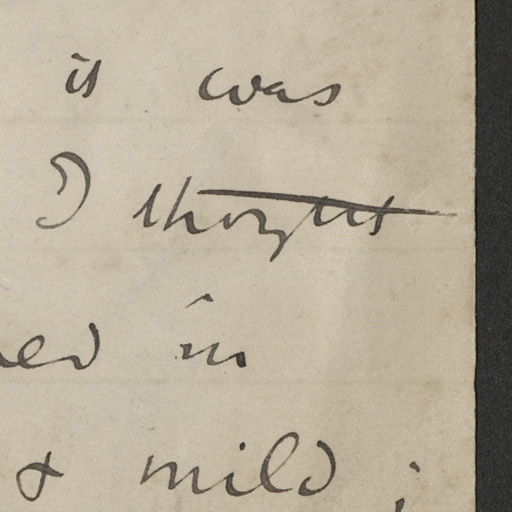 it was
I thought
ed in
& mild ;